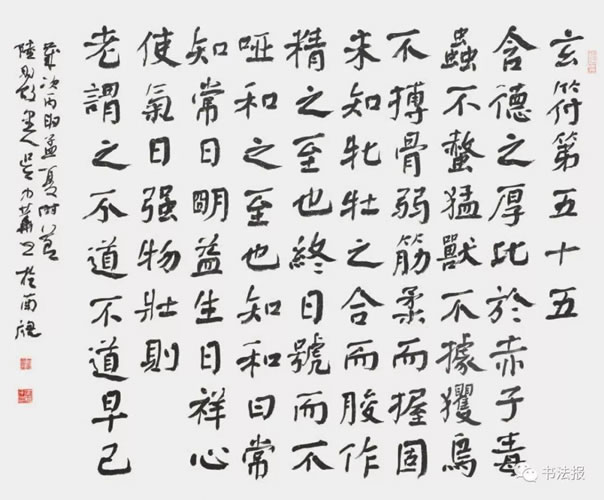 玄符第五十五
含德之厚比於赤子毒
蟲不螫猛獸不據玃鳥
不搏骨弱筋柔而握固
未知牝牡之合而朘作
精之至也終日號而不
啞和之至也知和曰常
知常曰明益生曰祥心
使氣曰强物壯則
老謂之不道不道早已
歲次丙申孟夏时
於南
书法报